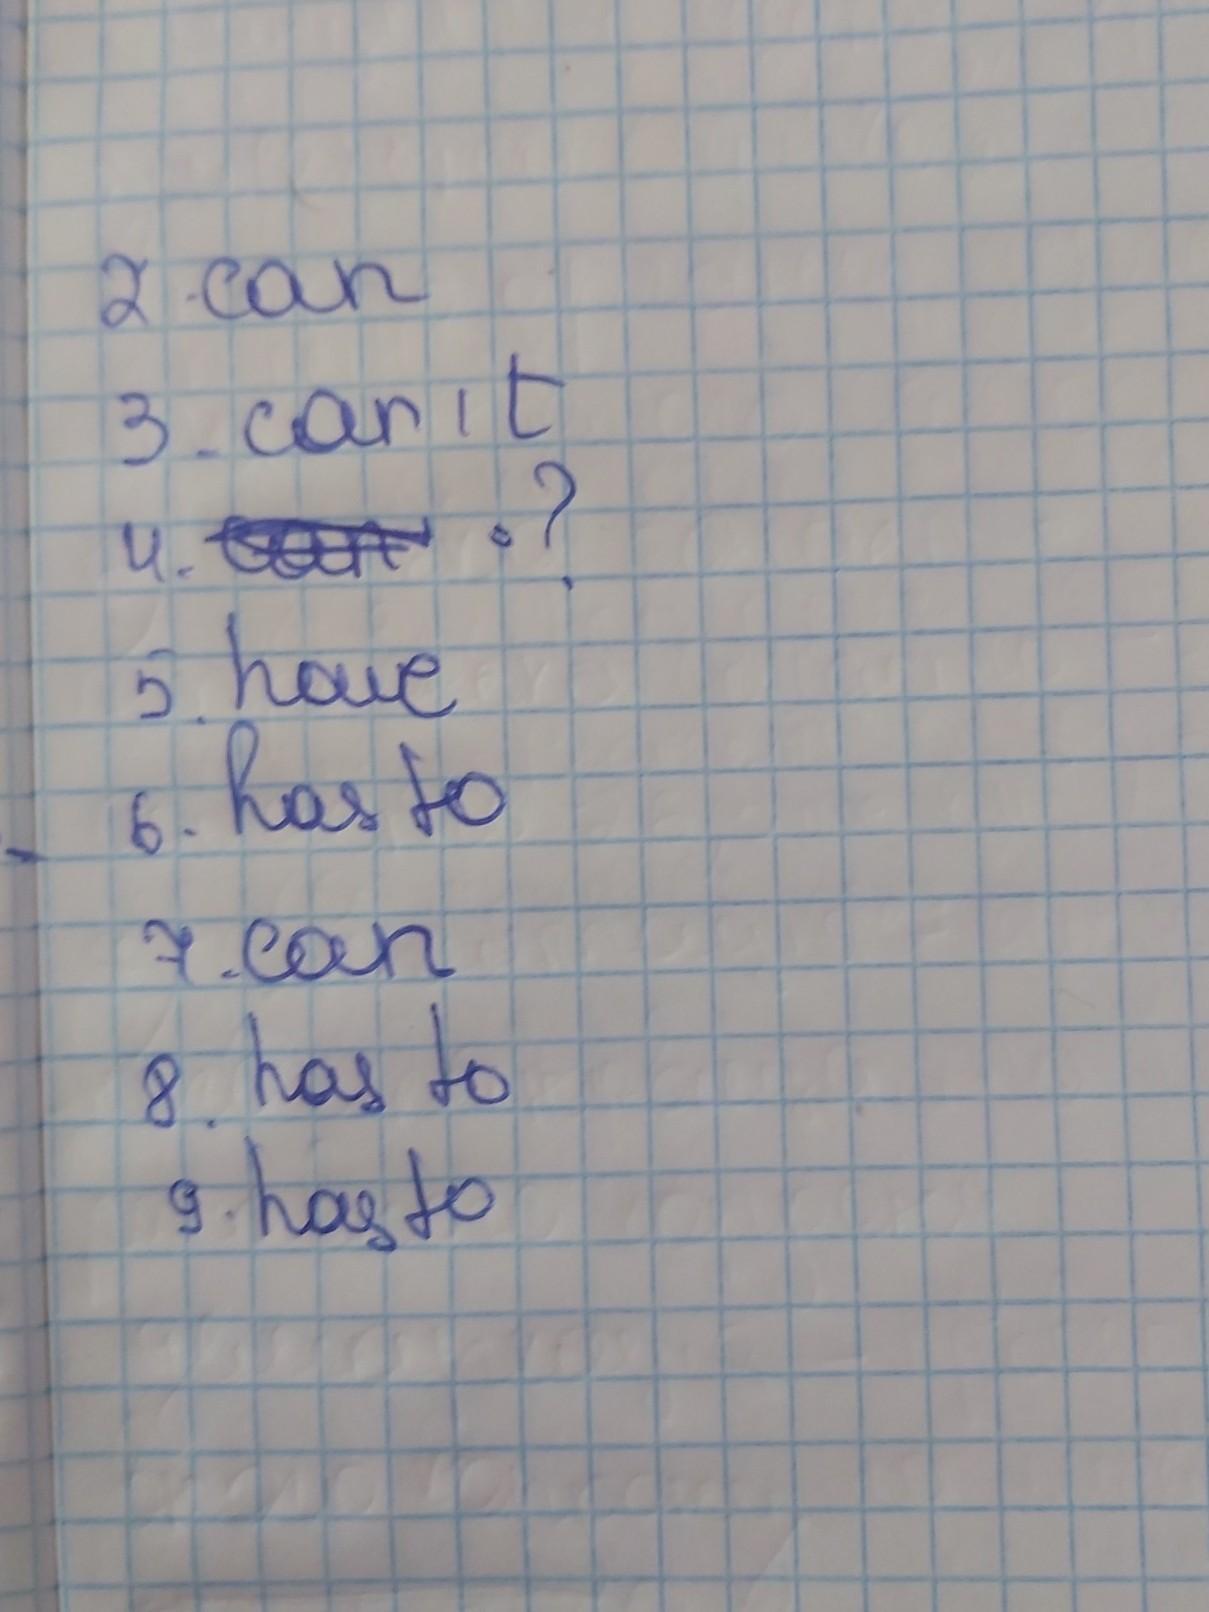 2. can
3. can't
4. . ?
5. have
6. has to
7. can
8. has to
9. has to